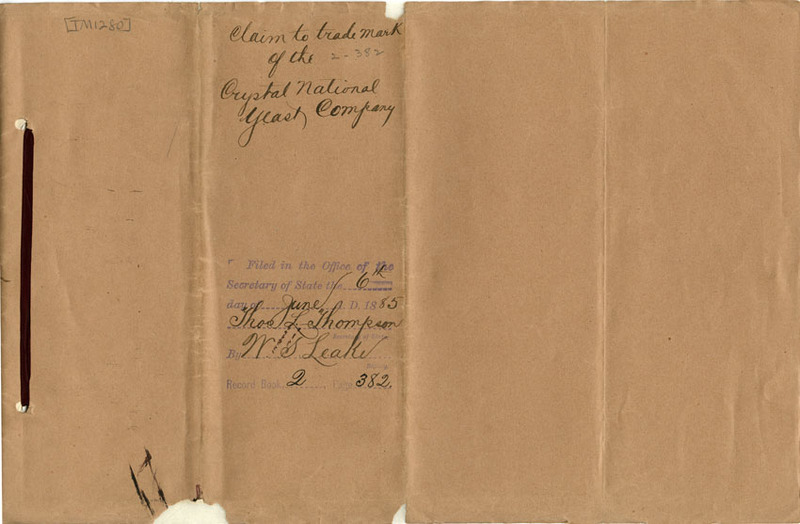 [TM1280]
Claim to trade mark
of the 2-382
Crystal National
Yeast Company
Filed in the Office of the
Secretary of State the 6th
day of June A. D. 1885
Thos L. Thompson
Secretary of State
By Wm T. Leake
Deputy
Record Book 2, Page 382.